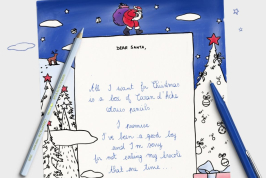 DEAR SANTA,
All I want for Christmas
is a box of Caran d'Ache
pencils
I promise
I've been a good boy
and I'm sorry
for not eating my
last time